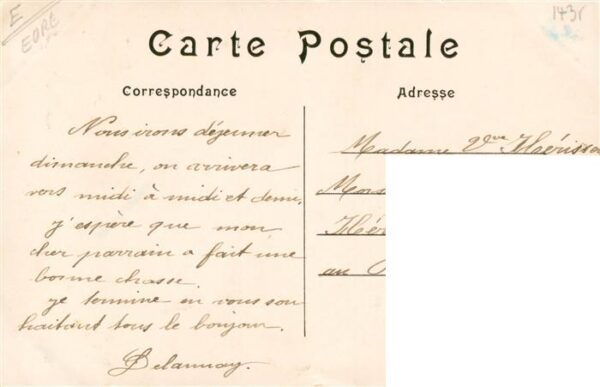 E
EURE
1431
Carte Postale
Correspondance
Adresse
Nous irons déjeuner
dimanche, on arrivera
vers midi à midi et demi,
j'espère que mon
cher parrain a fait une
bonne chasse.
je termine en vous sou
haitant tous le bonjour.
Delaunay.
Madame Vve Hérisse
Mons
Hér
au